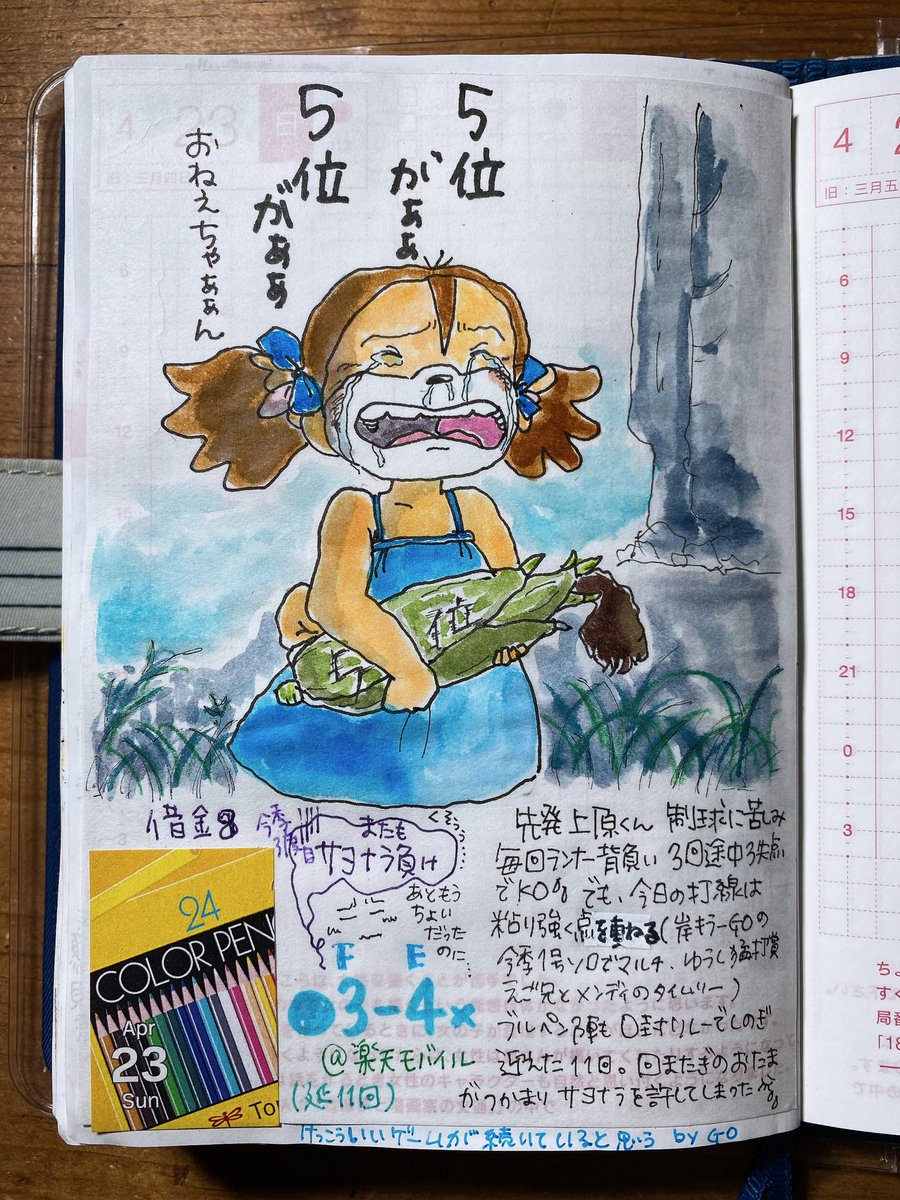 5位
がぁぁ
5位
がぁぁ
おねえちゃぁぁん
4 23 日
旧：三月四日
5位
借金8
今季
3度目
またも
サヨナラ負け
くそぅ
あともう
ちょい
だった
のに
F E
●3-4x
@楽天モバイル
(延11回)
24
COLOR PENC
Apr
23
Sun
TOM
先発上原くん 制球に苦しみ
毎回ランナー背負い 3回途中3失点
でKO。でも、今日の打線は
粘り強く点を重ねる(岸キラーGOの
今季1号ソロでマルチ、ゆうし猛打賞
えご兄とメンディのタイムリー)
ブルペン陣も0封リレーでしのぎ
迎えた11回。回またぎのおたま
がつかまり サヨナラを許してしまった
けっこういいゲームが続いていると思う by GO
4 2
旧：三月五
6
9
12
15
18
21
0
3
ちょ
すく
局番
「18